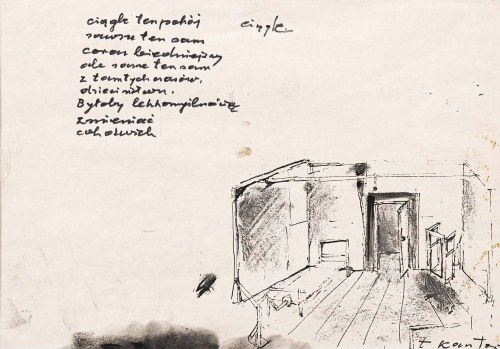 ciągle ten pokój
zawsze ten sam
coraz biedniejszy
ale zawsze ten sam
z tamtych czasów,
dzieciństwa.
Byłoby lekkomyślnością
zmieniać
cokolwiek
ciągle
t kantor